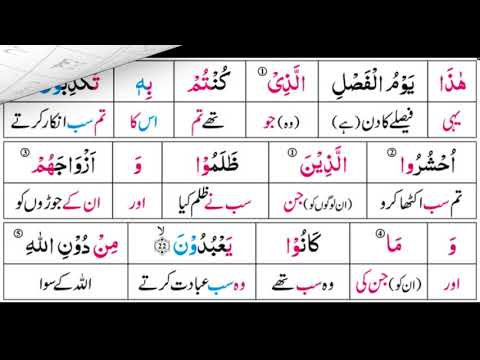 هٰذَا يَوْمُ الْفَصْلِ الَّذِىْ ① كُنْتُمْ بِهٖ تُكَذِّبُوْنَ
یہی فیصلے کا دن (ہے) (وہ) جو تھے تم اس کا تم سب انکار کرتے
اُحْشُرُوا ② الَّذِيْنَ ① ظَلَمُوْا وَ اَزْوَاجَهُمْ ③
تم سب اکٹھا کرو (ان لوگوں کو) جن سب نے ظلم کیا اور ان کے جوڑوں کو
وَ مَا ④ كَانُوْا يَعْبُدُوْنَ ۙ﴿22﴾ مِنْ دُوْنِ اللّٰهِ ⑤
اور (ان کو) جن کی وہ سب تھے وہ سب عبادت کرتے اللہ کے سوا